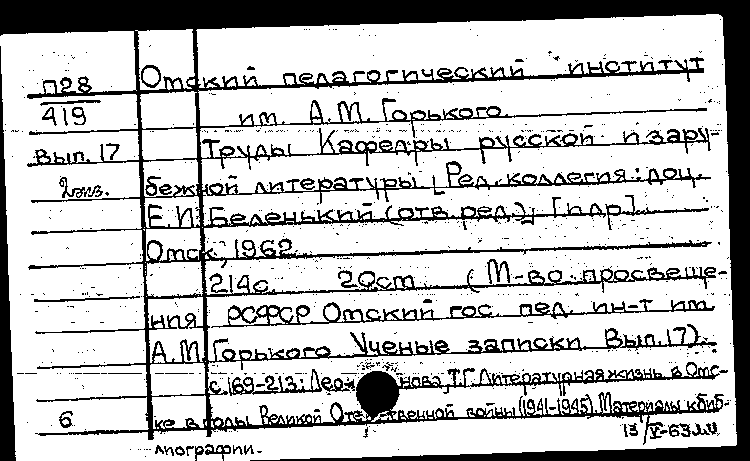 П28 Омский педагогический институт
419 им. А.М. Горького.
Вып. 17 Труды Кафедры русской и зару-
2 экз. бежной литературы [Ред. коллегия: доц.
Е.И. Беленький (отв. ред.), [и др].
Омск, 1962.
214с. 20см. (М-во просвеще-
ния РСФСР. Омский гос. пед. ин-т им.
А.М. Горького Ученые записки. Вып. 17).
с. 169-213: Т.Г. Литературная жизнь в Омс-
6 ке в годы Великой Отечественной войны (1941-1945). Материалы к биб-
лиографии.
13/V-63